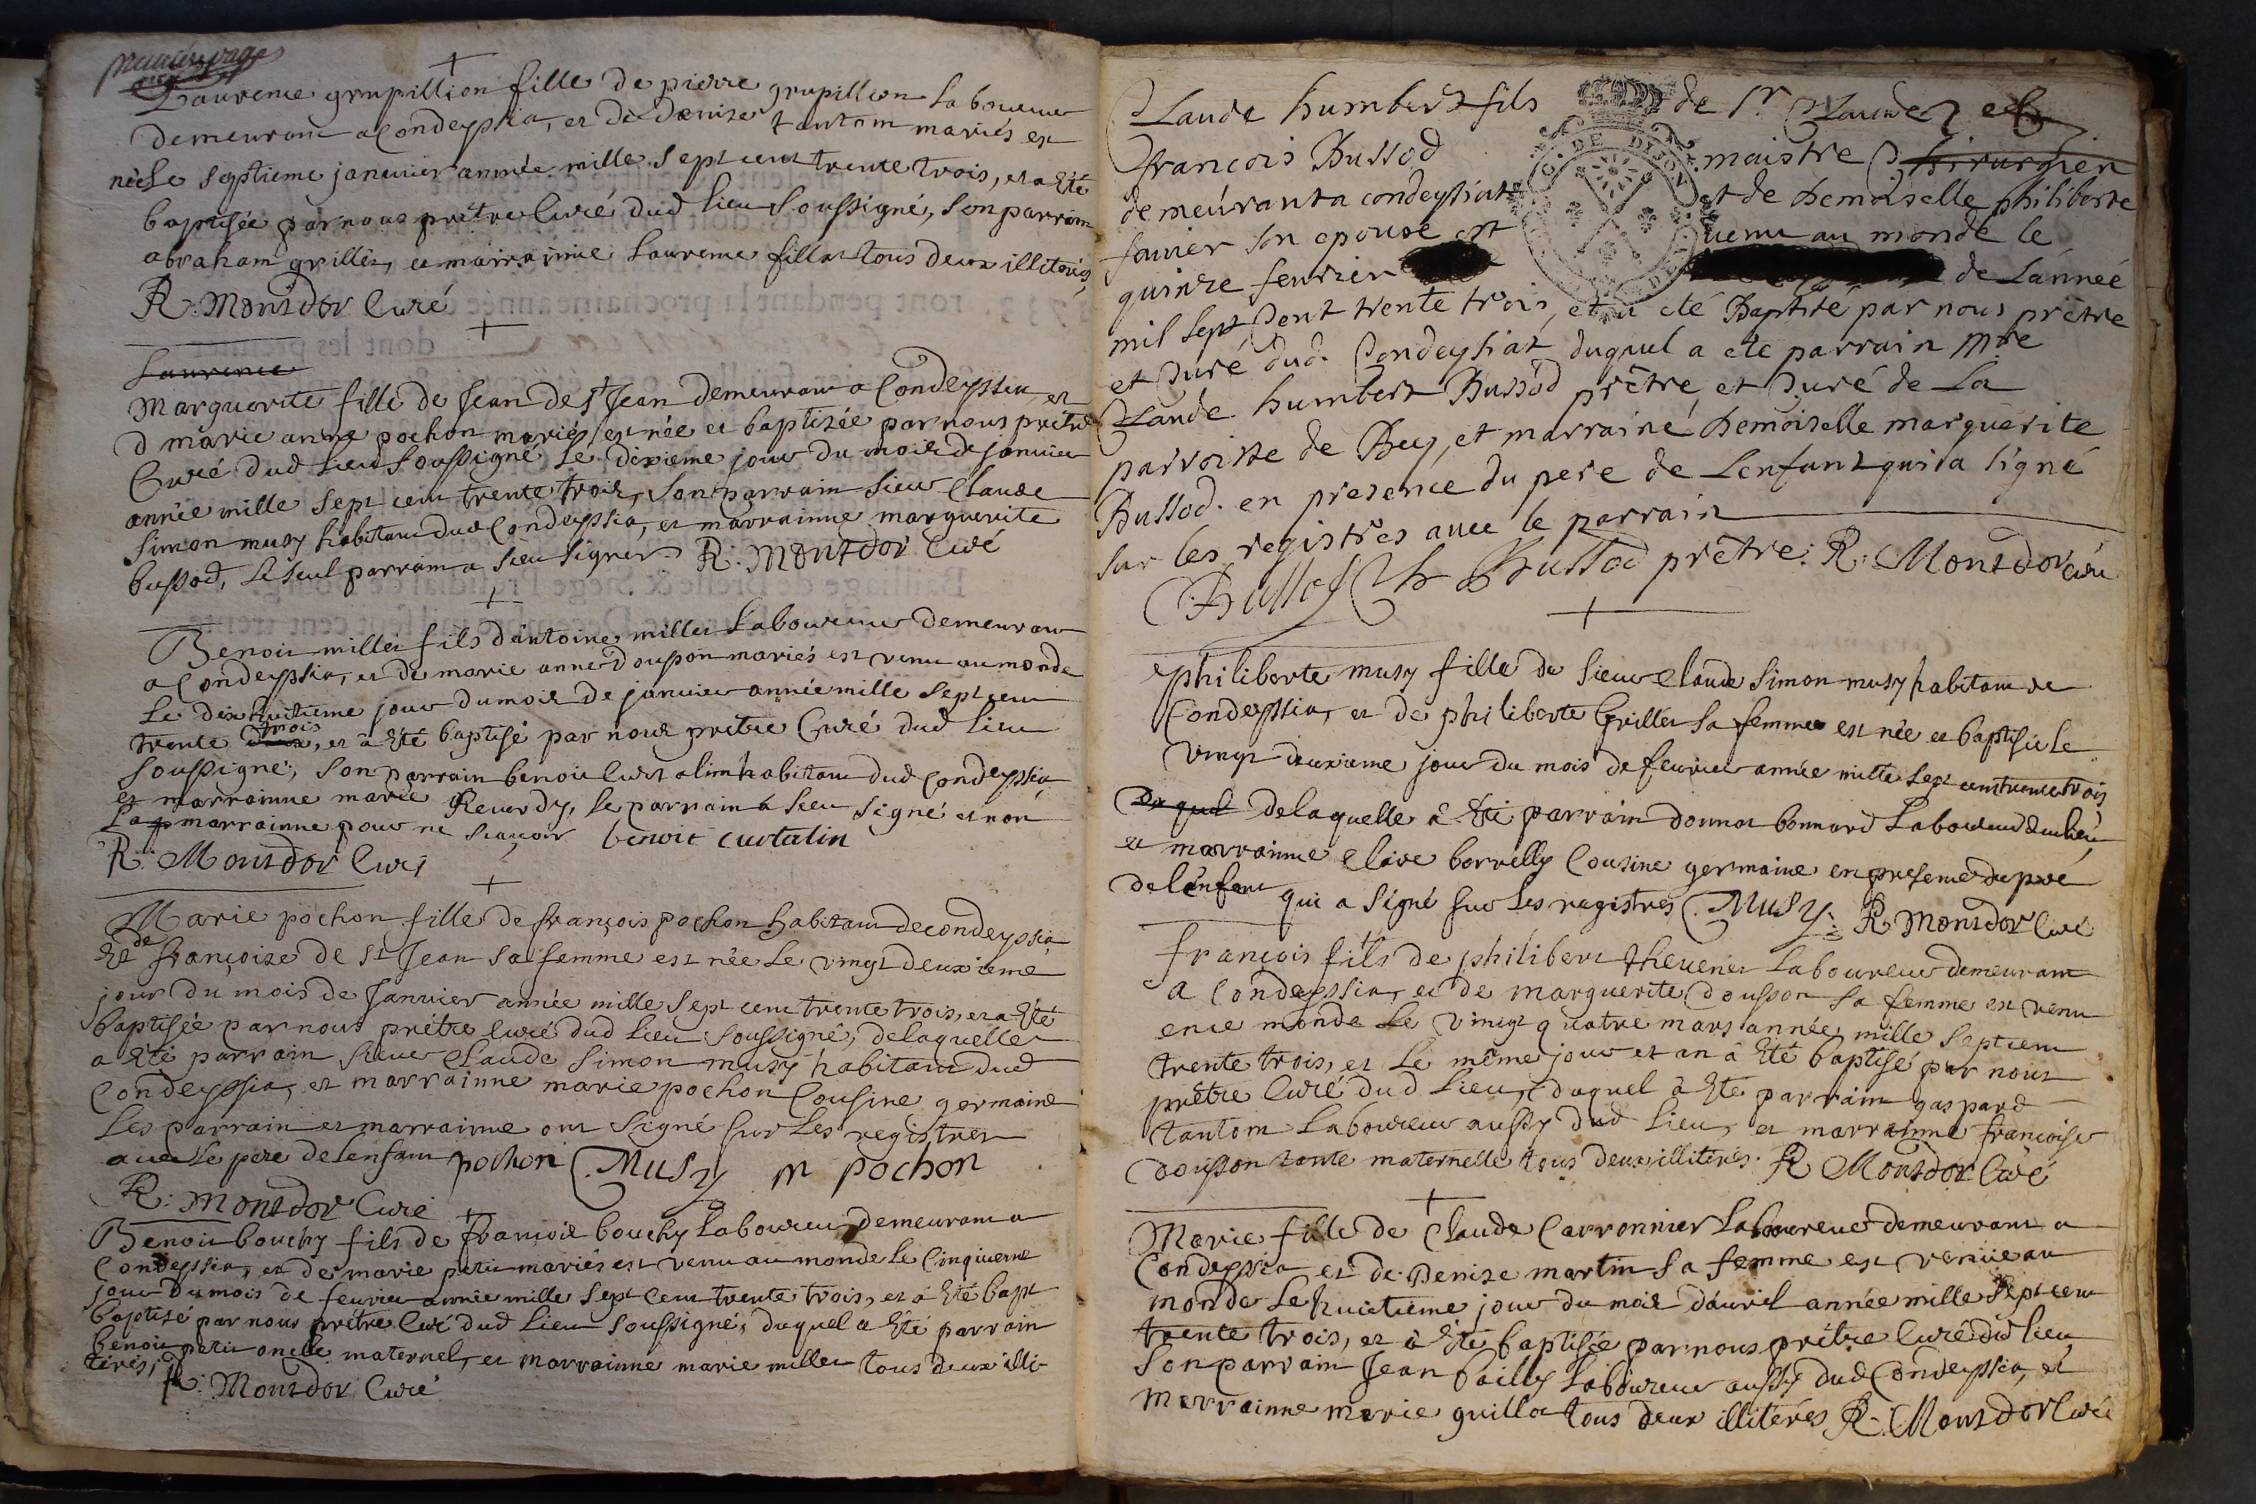 premiere page
Laurence grupillion fille de pierre grupillion Laboureur
demeurant a Condeyssia, et de denise tantom mariés est
née Le septieme januier année mille sept cent trente trois, et a Eté
baptisée par nous prêtre Curé dud lieu Soussigné, son parrain
abraham grillet, et marrainne Laurence fillat tous deux illiterés,
R: Montdor Curé
Laurence
Marguerite fille de Jean de st Jean demeurant a Condeyssia, et
d marie anne pochon mariés, est née et baptizée par nous prêtre
Curé dud Lieu Soussigné Le dixieme jour du mois de januier
année mille sept cent trente trois, Son parrain sieur Claude
Simon musy habitant dud Condeyssia, et marrainne marguerite
bussod, Le seul parrain a sceu signer R: Montdor Curé
Benoit millet fils dantoine millet Laboureur demeurant
a Condeyssia, et de marie anne douson mariés est venu au monde
Le dix huitieme jour du mois de januier année mille sept cent
trente trois, et à Eté baptisé par nous prêtre Curé dud lieu
soussigné, son parrain benoit Curtalin habitant dud Condeyssia,
et marrainne marie Reuerdy, le parrain à sceu signé et non
La marrainne pour ne scauoir benoit curtalin
R: Montdor Curé
Marie pochon fille de françois pochon habitant de condeyssia
Et de françoise de st Jean sa femme est née Le vingt deuxieme
jour du mois de Januier année mille sept cent trente trois, et a Eté
baptisée par nous prêtre Curé dud Lieu soussigné, de laquelle
a Eté parrain sieur Claude Simon musy habitant dud
Condeyssia, et marrainne marie pochon Cousine germaine
Les parrain et marrainne ont signé sur Les registres
auec Le pere de Lenfant pochon Musy m pochon
R: Montdor Curé
Benoit bouchy fils de francois bouchy Laboureur demeurant a
Condeyssia, et de marie petit mariés est venu au monde Le Cinquieme
jour du mois de feurier année mille sept cent trente trois, et à Eté bapt
baptisé par nous prêtre Curé dud Lieu soussigné, duquel a Eté parrain
benoit petit oncle maternel, et marrainne marie millet tous deux illi-
terés, R: Montdor Curé
Claude humbert fils de Sr Claude
francois Bussod maistre Chirurgien
demeurant a condeyssiat et de Demoiselle philiberte
son epouse est venu au monde le
quinze feurier de Lanneé
mil sept Cent trente trois, et a eté Baptisé par nous prêtre
et Curé dud. Condeyssiat duquel a eté parrain Mre
Claude humbert Bussod prêtre et Curé de La
parroisse de Bey, et marrainé Demoiselle marguerite
Bussod. en presence du pere de Lenfant qui a signé
sur les registres auec le parrain
Bussod Ch Bussod prêtre. R: Montdor curé
C. DE DIJON
philiberte musy fille de sieur Claude Simon musy habitant de
Condeyssia, et de philiberte Grillet sa femme est née et baptisée Le
vingt deuxieme jour du mois de feurier année mille sept cent trente trois
Duquel de laquelle à Eté parrain donnat bonnard Laboureur dud lieu
et marrainne Claire borrelly Cousine germaine en presence du pere
de lenfant qui a signé sur Les registres Musy: R Montdor Curé
François fils de philibert theuenet Laboureur demeurant
a Condeyssia, et de marguerite douson sa femme est venu
en ce monde Le vingt quatre mars année mille sept cent
trente trois, et Le même jour et an à Eté baptisé par nous
prêtre Curé dud Lieu, duquel à Eté parrain gaspard
tantom Laboureur aussy dud Lieu, et marrainne francoise
douson tante maternelle tous deux illiterés. R Montdor Curé
Marie fille de Claude Carronnier Laboureur demeurant a
Condeyssia et de Denize martin sa femme est venüe au
monde Le huictieme jour du mois dauril année mille sept cent
trente trois, et à Eté baptisée par nous prêtre Curé dud lieu
Son parrain Jean bailly Laboureur aussy dud Condeyssia, et
Marrainne marie guillot tous deux illiterés R. Montdor Curé